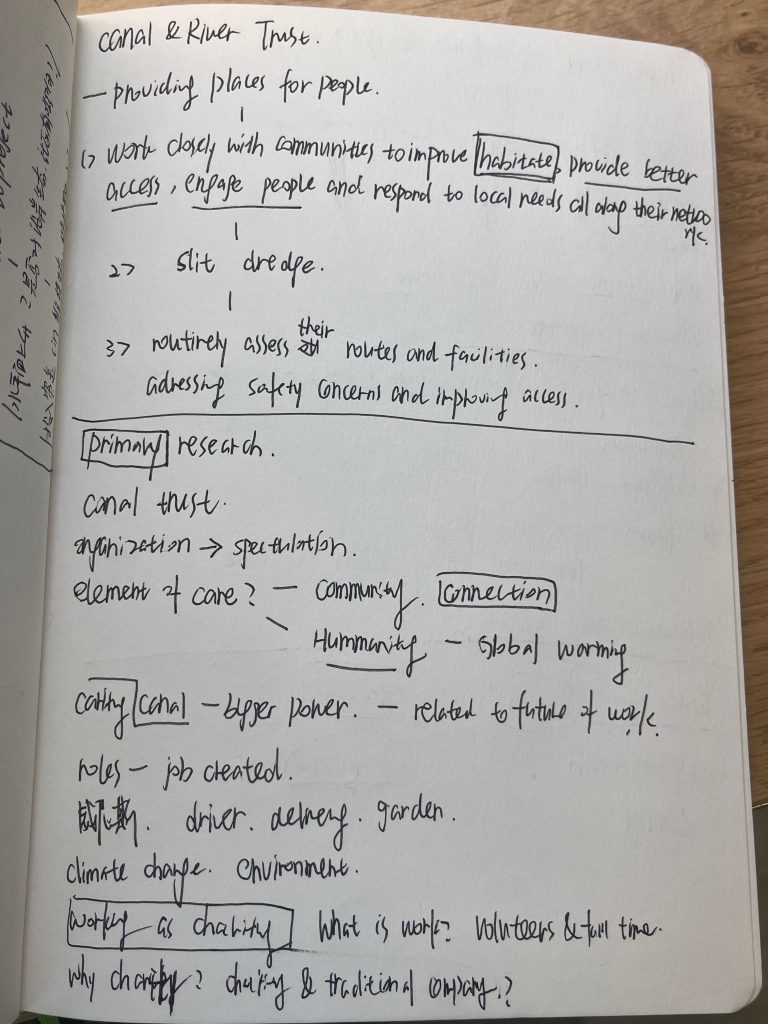 Canal & River Trust.
— providing places for people.
1> work closely with communities to improve habitate, provide better
access, engage people and respond to local needs all along their netwo
rk.
2> slit dredge.
3> routinely assess their routes and facilities.
adressing safety concerns and improving access.
primary research.
canal trust.
organization → specthlation.
element of care? — community. connection
Hummanity — Global warming
canal — bigger power. — related to future of work.
roles — job created.
driver. delivery. garden.
climate change. environment.
working as charity What is work? volunteers & full time.
why charity? charity & traditional company?